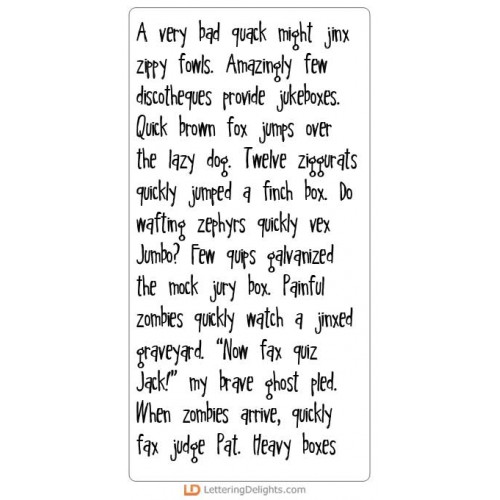 A very bad quack might jinx
zippy fowls. Amazingly few
discotheques provide jukeboxes.
Quick brown fox jumps over
the lazy dog. Twelve ziggurats
quickly jumped a finch box. Do
wafting zephyrs quickly vex
Jumbo? Few quips galvanized
the mock jury box. Painful
zombies quickly watch a jinxed
graveyard. “Now fax quiz
Jack!” my brave ghost pled.
When zombies arrive, quickly
fax judge Pat. Heavy boxes
LD LetteringDelights.com